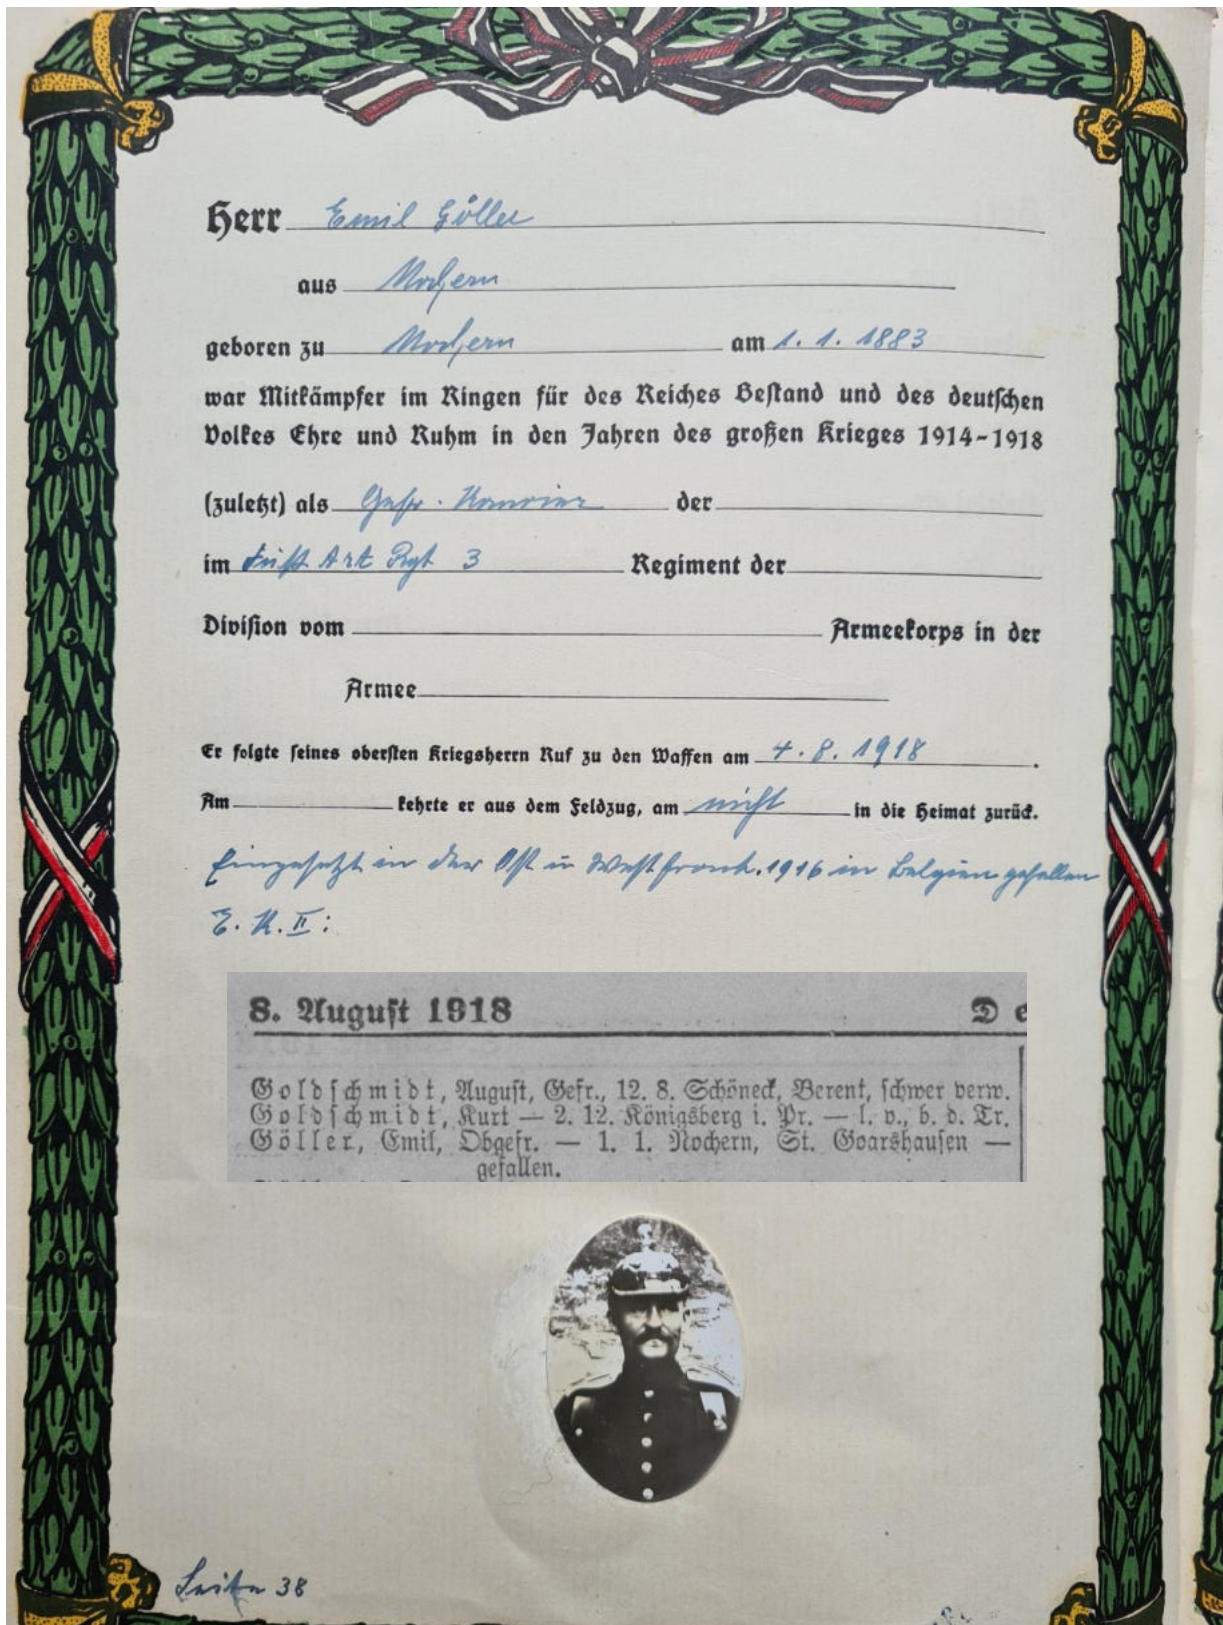 Herr Emil Göller
aus Nochern
geboren zu Nochern am 1. 1. 1883
war Mitkämpfer im Ringen für des Reiches Bestand und des deutschen
Volkes Ehre und Ruhm in den Jahren des großen Krieges 1914-1918
(zuletzt) als Gefr. Kanonier der
im Fuß Art Rgt 3 Regiment der
Division vom Armeekorps in der
Armee
Er folgte seines obersten Kriegsherrn Ruf zu den Waffen am 4. 8. 1918.
Am kehrte er aus dem Feldzug, am nicht in die Heimat zurück.
Eingesetzt in der Ost u Westfront. 1916 in Belgien gefallen
E. K. II:
8. August 1918 De
Goldschmidt, August, Gefr., 12. 8. Schöneck, Berent, schwer verw.
Goldschmidt, Kurt — 2. 12. Königsberg i. Pr. — l. v., b. d. Tr.
Göller, Emil, Obgefr. — 1. 1. Nochern, St. Goarshausen —
gefallen.
Seite 38